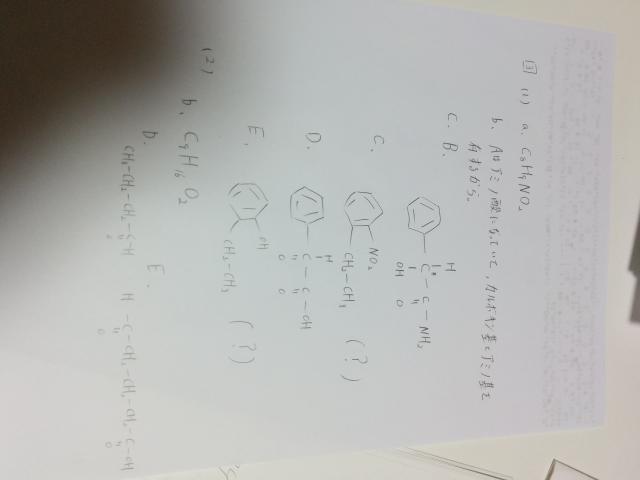 (1) a. C8H9NO2
b. Aはアミノ酸になっていて、カルボキシ基とアミノ基を
有するから。
C. B.
H
C* - C - NH2
OH O
C.
NO2
CH2-CH3 (?)
D.
H
C - C - OH
O O
E.
OH
CH2-CH3 (?)
(2)
b. C9H16O2
D. E.
CH3-CH2-CH2-C-H
O
H-C-CH2-CH2-CH2-C-OH
O O